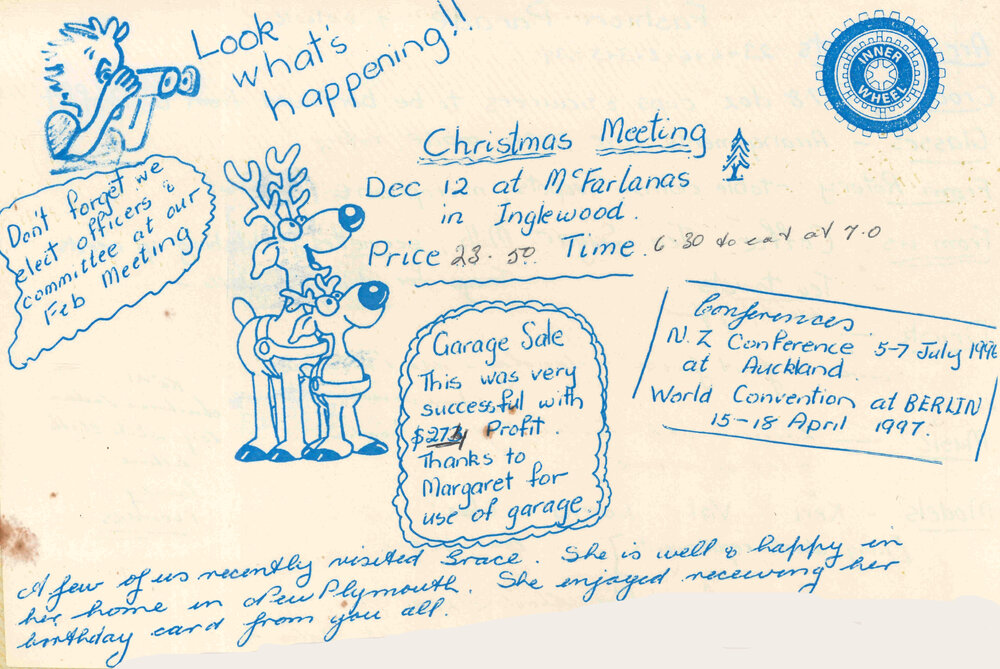 Look
what's
happening!!
INNER
WHEEL
Christmas Meeting
Dec 12 at McFarlanas
in Inglewood.
Price 23.50 Time 6.30 to eat at 7.0
Don't forget we
elect officers &
committee at our
Feb Meeting
Conferences
N.Z Conference 5-7 July 1996
at Auckland.
World Convention at BERLIN
15-18 April 1997.
Garage Sale
This was very
successful with
Profit.
Thanks to
Margaret for
use of garage.
A few of us recently visited Grace. She is well & happy in
her home in New Plymouth. She enjoyed receiving her
birthday card from you all.